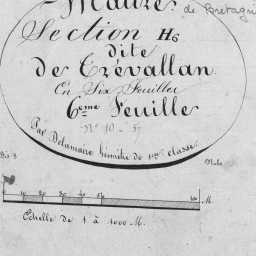 Maure de Bretagne
Section H6
dite
de Trévallan
En Six Feuilles
6eme Feuille
N° 10 - 5
Par Delamaire Géomètre de 1ère classe
0 10 20 30 40 50 100 M.
Echelle de 1 à 1000 M.